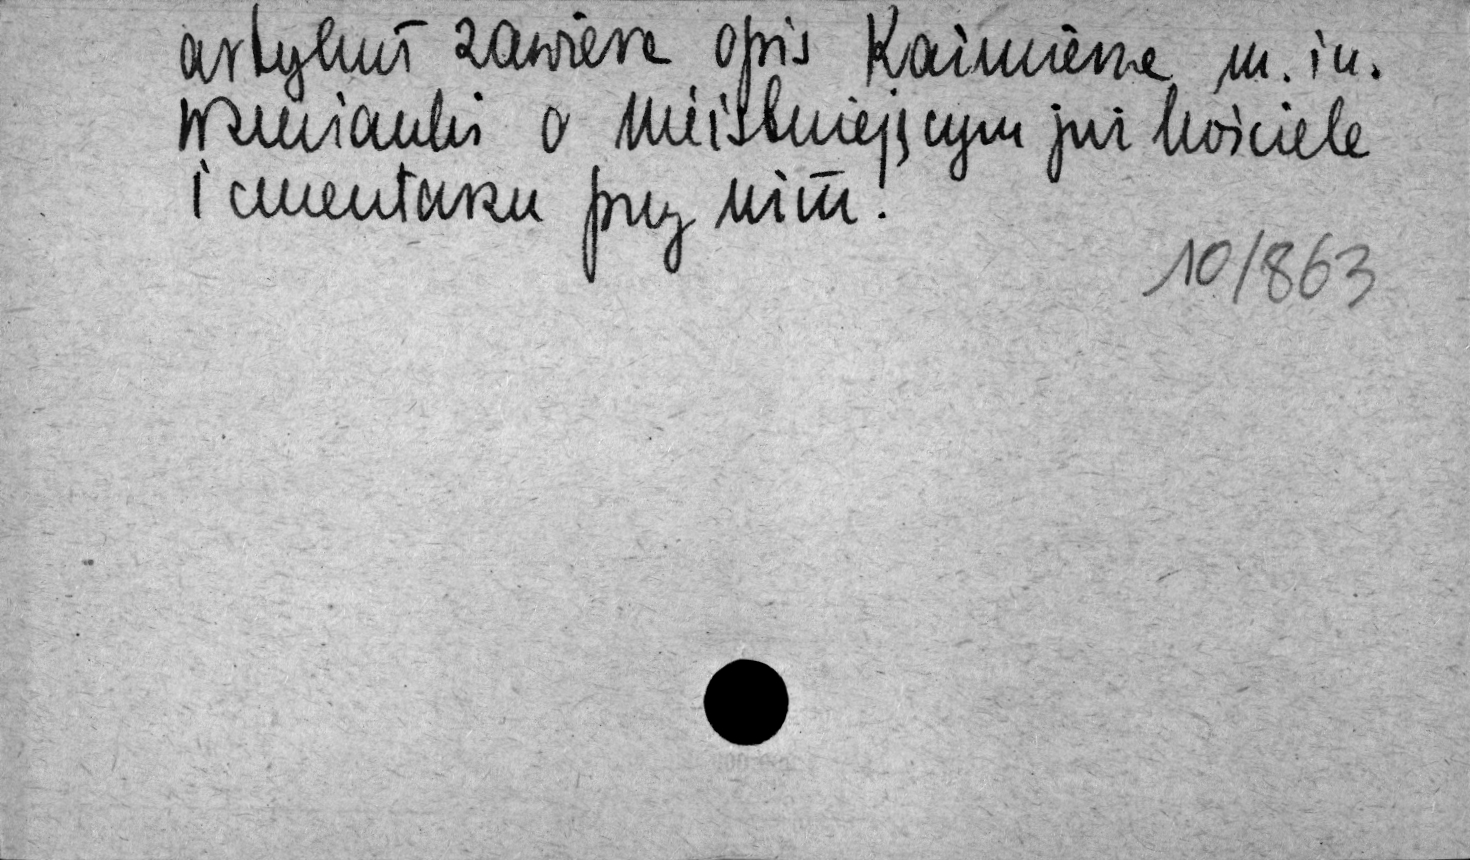 artykuł zawiera opis Kaźmierza m. in.
wzmianki o nieistniejącym już kościele
i cmentarzu przy nim.
10/863